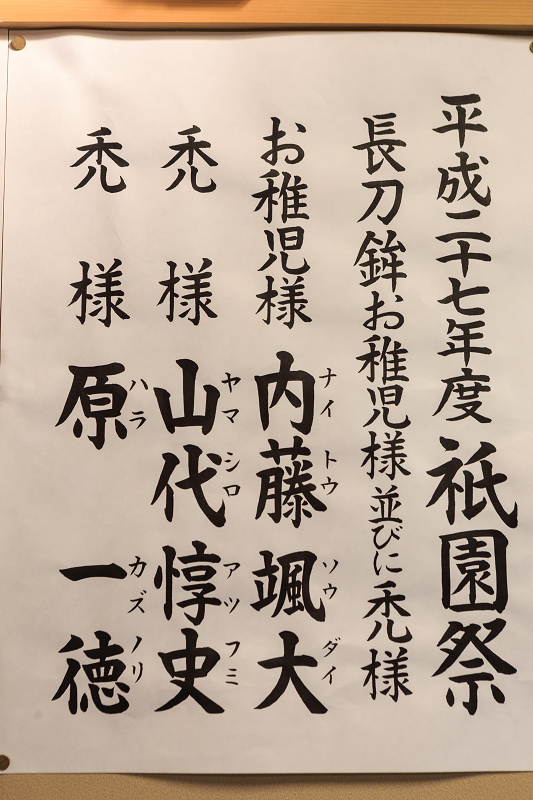 平成二十七年度 祇園祭
長刀鉾お稚児様並びに禿様
お稚児様 内藤 颯大
ナイ トウ ソウ ダイ
禿 様 山代 惇史
ヤマ シロ アツ フミ
禿 様 原 一徳
ハラ カズ ノリ